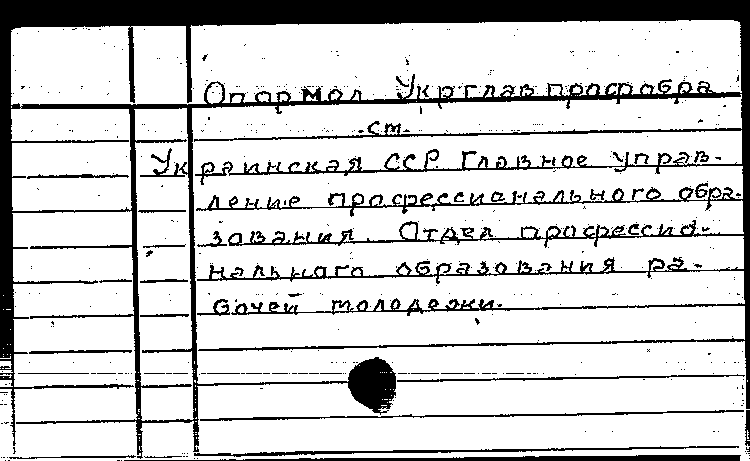 Опормол Укрглавпрофобра
см.
Украинская ССР. Главное управ-
ление профессионального обра-
зования. Отдел профессио-
нального образования ра-
бочей молодежи.